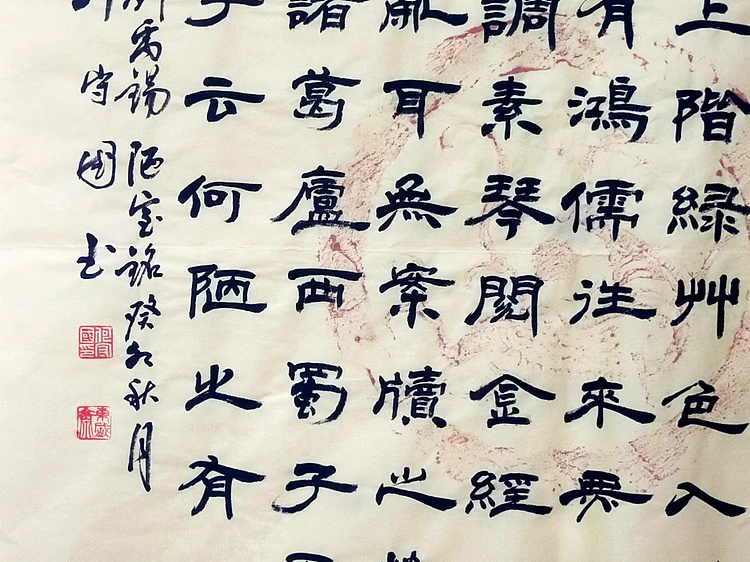 上階綠艸色入
有鴻儒往來無
調素琴閱金經
亂耳無案牘之
諸葛廬西蜀子
子云何陋之有
禹錫陋室銘癸卯秋月
守國书